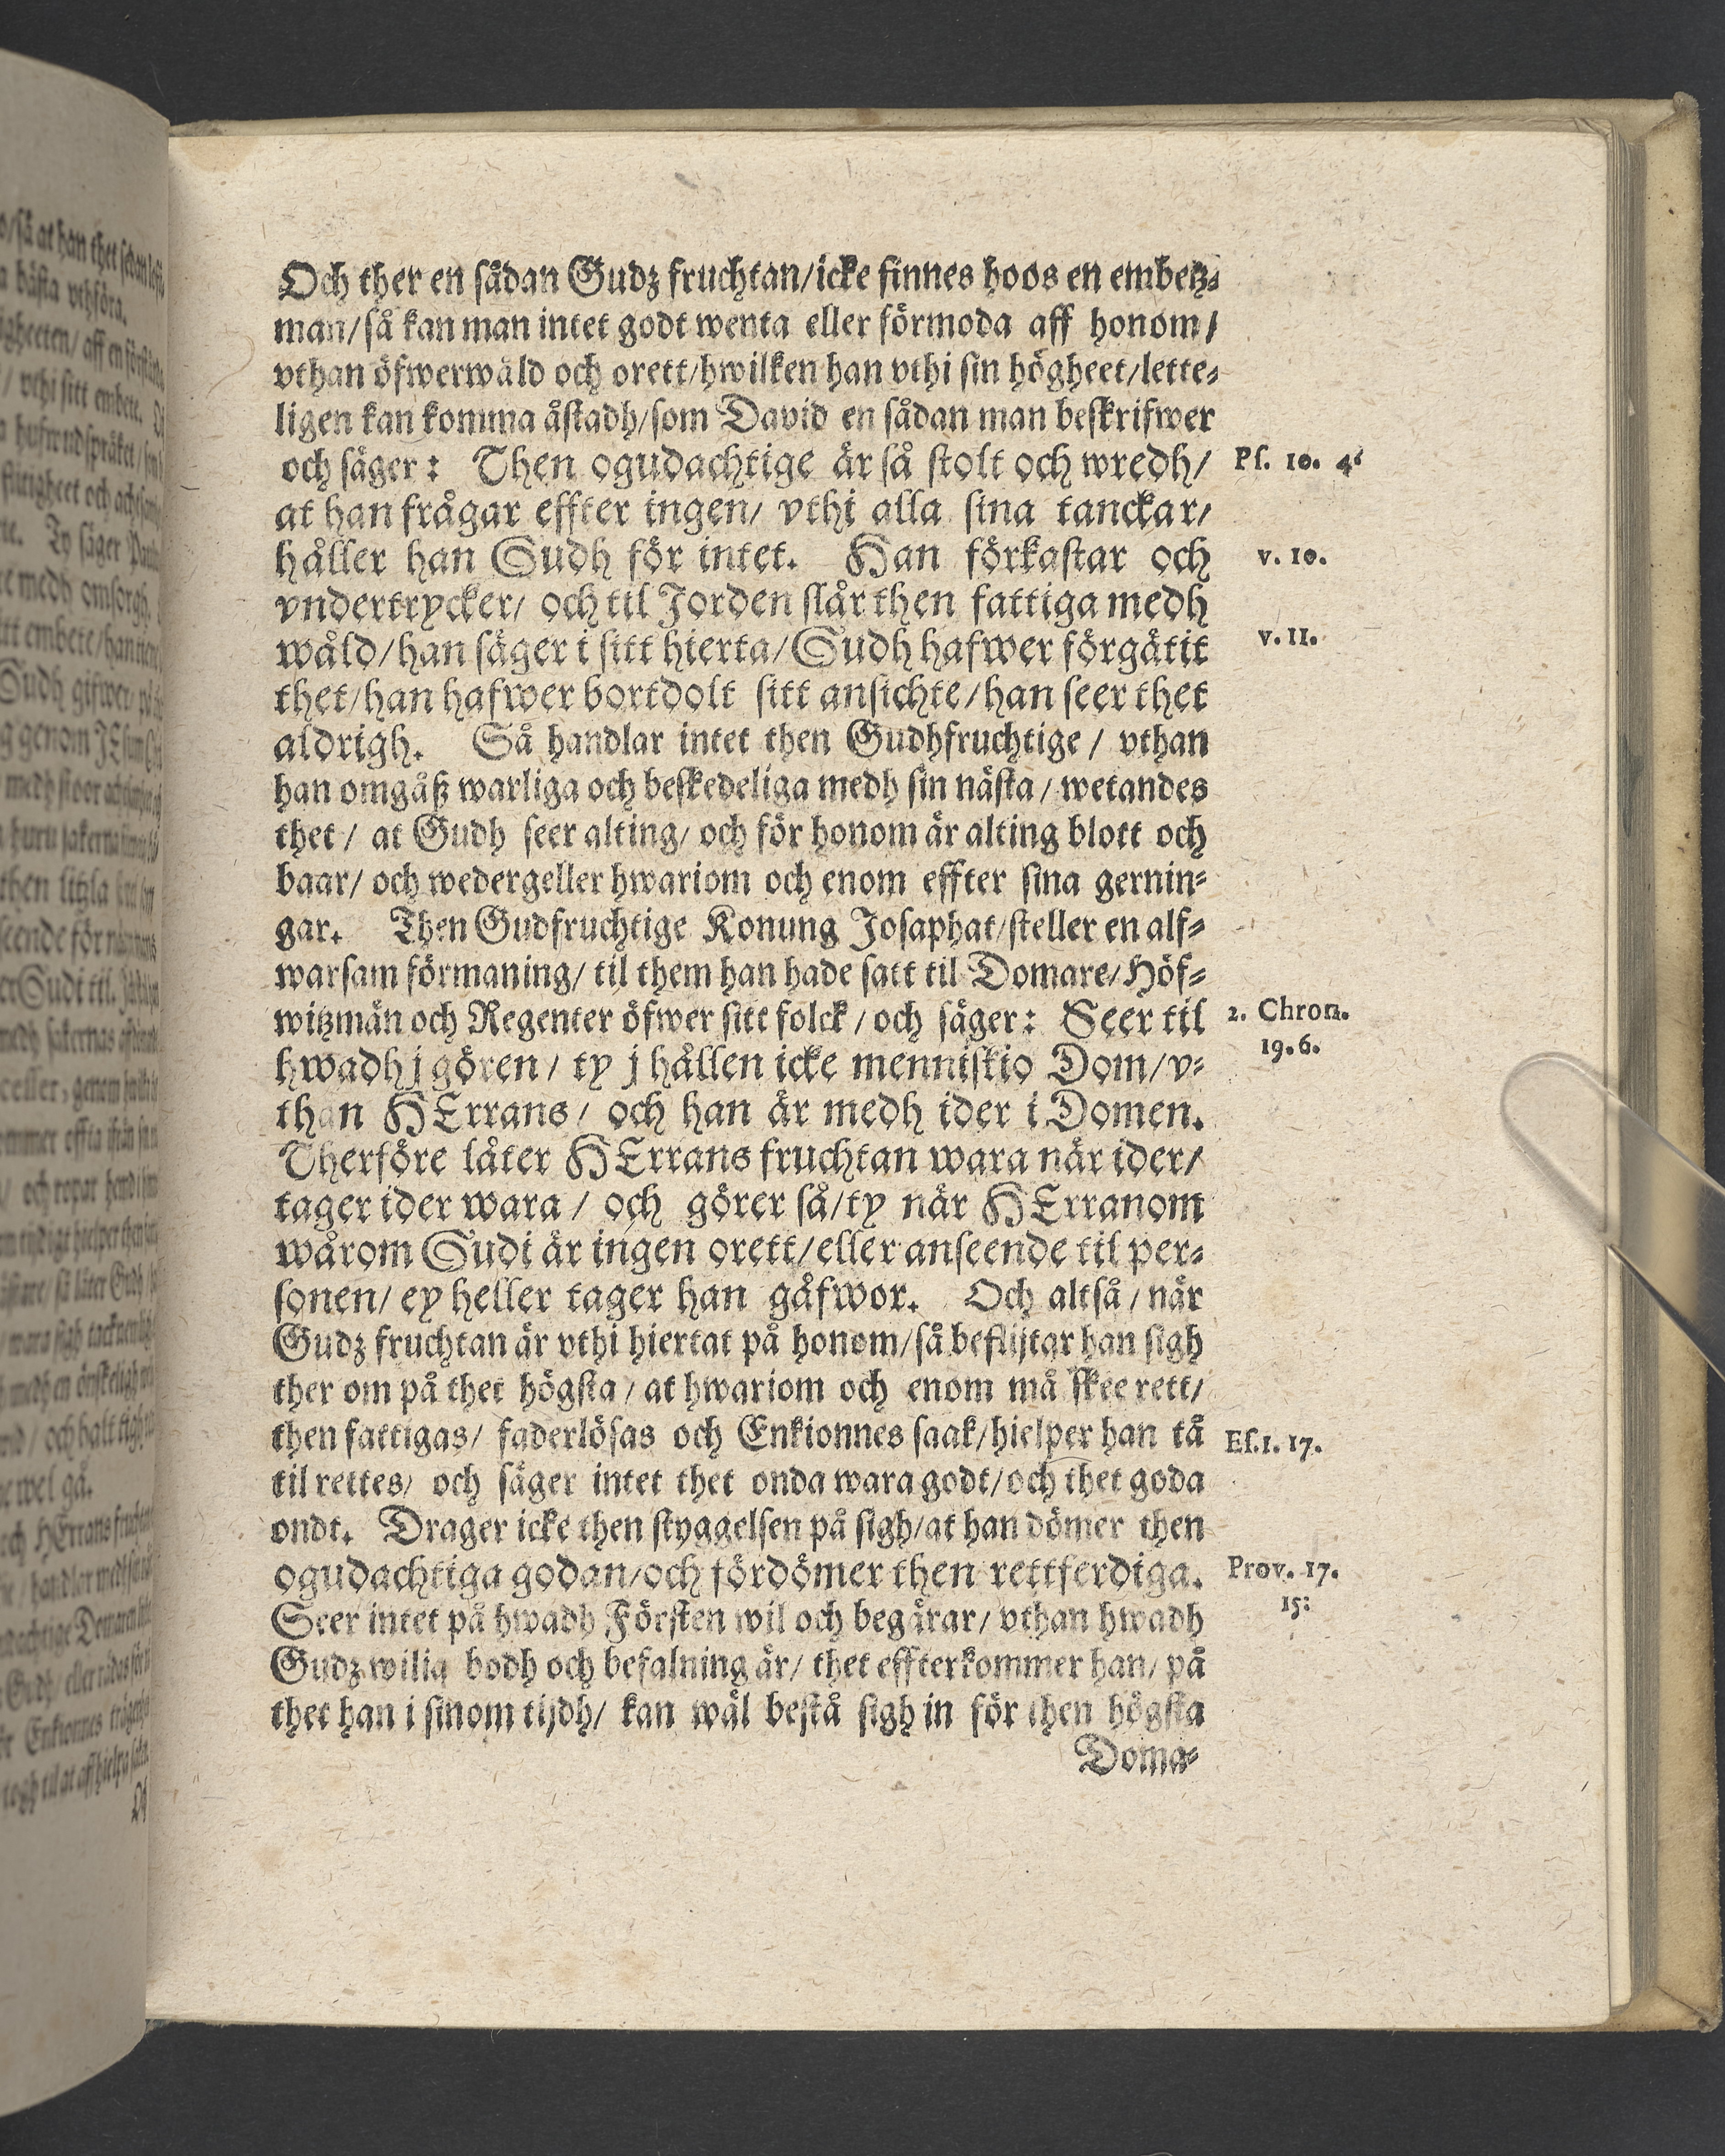 Och ther en sådan Gudz fruchtan/icke finnes hoos en embetz-
man/så kan man intet godt wenta eller förmoda aff honom/
vthan öfwerwåld och orett/hwilken han vthi sin högheet/lette-
ligen kan komma åstadh/som David en sådan man beskrifwer
och säger: Then ogudachtige är så stolt och wredh/
Ps. 10. 4.
at han frågar effter ingen/ vthi alla sina tanckar/
håller han Gudh för intet. Han förkastar och
v. 10.
vndertrycker/ och til Jorden slår then fattiga medh
wåld/han säger i sitt hierta/Gudh hafwer förgätit
v. 11.
thet/han hafwer bortdolt sitt ansichte/han seer thet
aldrigh. Så handlar intet then Gudhfruchtige/ vthan
han omgåß warliga och beskedeliga medh sin nästa/ wetandes
thet/ at Gudh seer alting/ och för honom är alting blott och
baar/ och wedergeller hwariom och enom effter sina gernin-
gar. Then Gudfruchtige Konung Josaphat/steller en alf-
warsam förmaning/ til them han hade satt til Domare/Höf-
witzmän och Regenter öfwer sitt folck/ och säger: Seer til
2. Chron.
19. 6.
hwadh j gören/ ty j hållen icke menniskio Dom/v-
than HErrans/ och han är medh ider i Domen.
Therföre låter HErrans fruchtan wara när ider/
tager ider wara/ och görer så/ty när HErranom
wårom Gudi är ingen orett/eller anseende til per-
sonen/ ey heller tager han gåfwor. Och altså/ när
Gudz fruchtan är vthi hiertat på honom/så beflijtar han sigh
ther om på thet högsta/ at hwariom och enom må skee rett/
then fattigas/ faderlösas och Enkionnes saak/hielper han tå
Es. 1. 17.
til rettes/ och säger intet thet onda wara godt/och thet goda
ondt. Drager icke then styggelsen på sigh/at han dömer then
ogudachtiga godan/och fördömer then rettferdiga.
Prov. 17.
15:
Seer intet på hwadh Försten wil och begärar/ vthan hwadh
Gudz wilia bodh och befalning är/ thet effterkommer han/ på
thet han i sinom tijdh/ kan wäl bestå sigh in för then högsta
Doma-